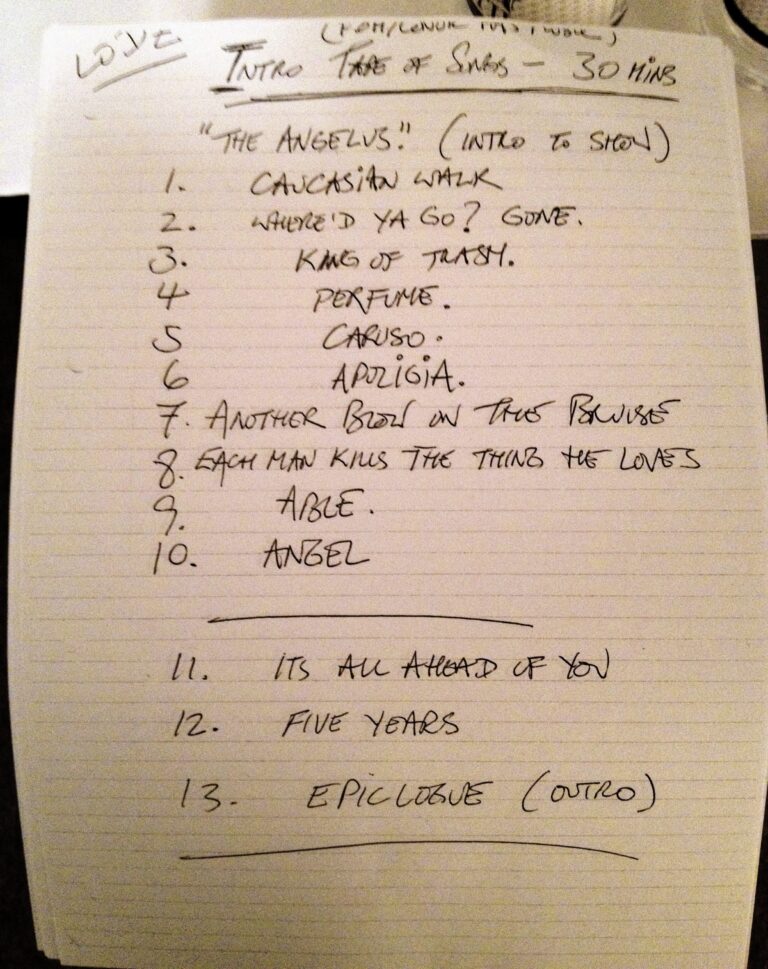 INTRO TAPE OF SONGS - 30 MINS
"THE ANGELUS." (INTRO TO SHOW)
1. CAUCASIAN WALK
2. WHERE'D YA GO? GONE.
3. KING OF TRASH.
4 PERFUME.
5 CARUSO.
6 APOLIGIA.
7. ANOTHER BLOW ON THE BRUISE
8. EACH MAN KILLS THE THING HE LOVES
9. ABLE.
10. ANGEL
11. ITS ALL AHEAD OF YOU
12. FIVE YEARS
13. EPICLOGUE (OUTRO)